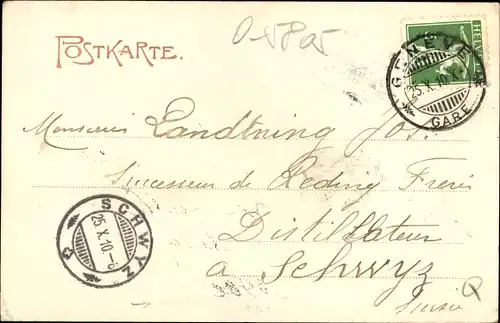 POSTKARTE.
HELVETIA
GENÈVE
25.X.10.
GARE
Monsieur Landtwing Jos.
Successeur de Reding Frères
Distillateur
à Schwyz
Suisse
SCHWYZ
25.X.10-6